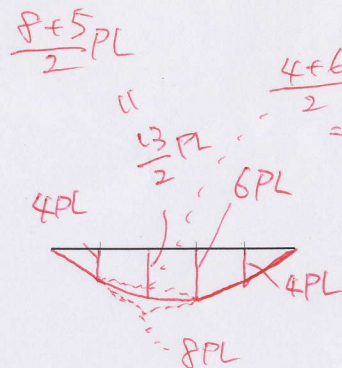 8+5/2 PL
"
4+6/2
=
13/2 PL
6PL
4PL
4PL
8PL